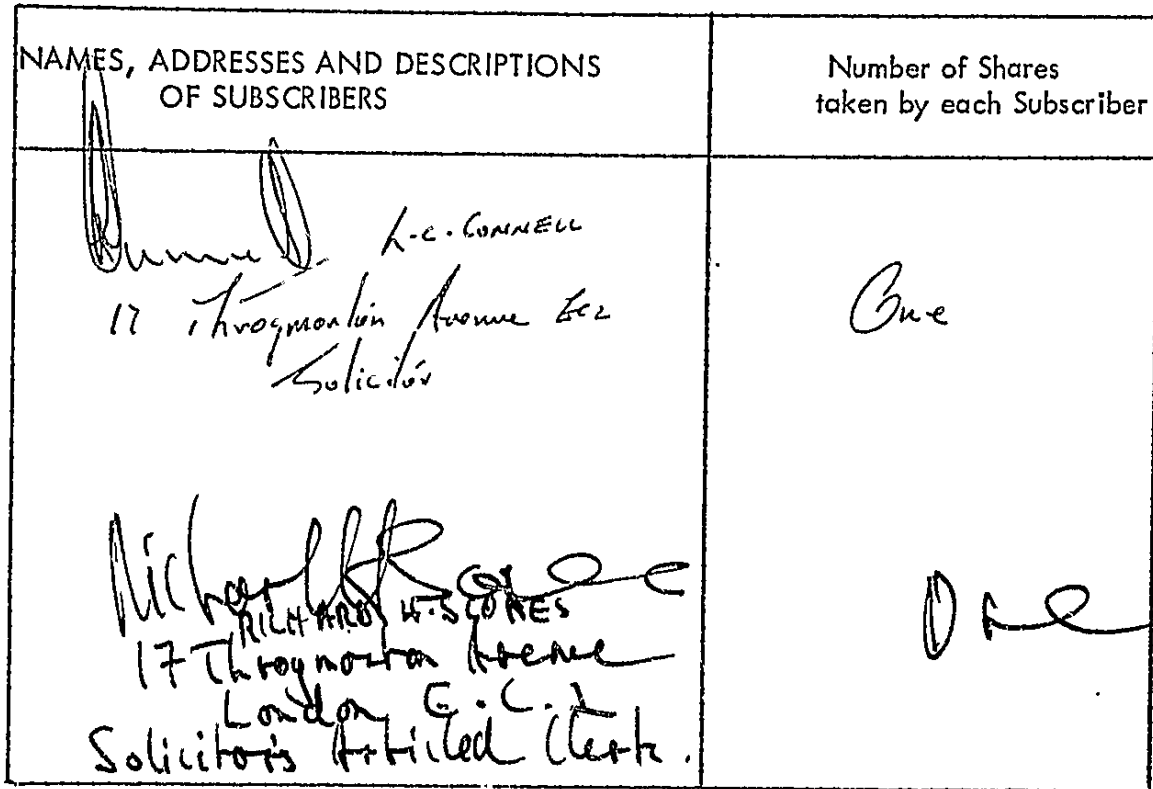 NAMES, ADDRESSES AND DESCRIPTIONS
OF SUBSCRIBERS
Number of Shares
taken by each Subscriber
L.C. CONNELL
17 Throgmorton Avenue EC2
Solicitor
One
RICHARD W. SCORES
17 Throgmorton Avenue
London E.C.2
Solicitor's Articled Clerk.
One